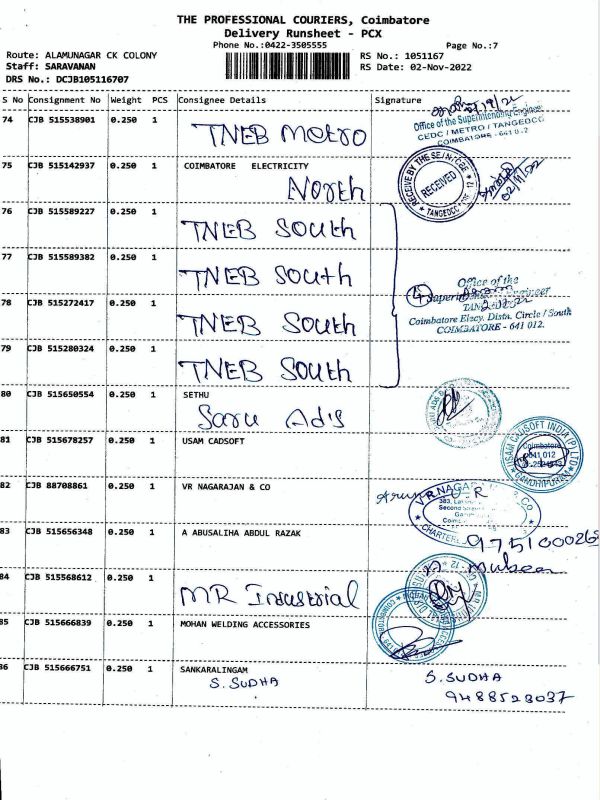 THE PROFESSIONAL COURIERS, Coimbatore
Delivery Runsheet - PCX
Phone No.:0422-3505555
Page No.:7
Route: ALAMUNAGAR CK COLONY
Staff: SARAVANAN
DRS No.: DCJB105116707
RS No.: 1051167
RS Date: 02-Nov-2022
S No Consignment No Weight PCS Consignee Details Signature
74 CJB 515538901 0.250 1 TNEB Metro
Office of the Superintending Engineer
CEDC / METRO / TANGEDCO
COIMBATORE - 641 0
75 CJB 515142937 0.250 1 COIMBATORE ELECTRICITY
North
RECEIVED
TANGEDCO
02/11/22
76 CJB 515589227 0.250 1 TNEB South
77 CJB 515589382 0.250 1 TNEB South
4
Office of the
78 CJB 515272417 0.250 1 TNEB South
Coimbatore Elecy. Distn. Circle / South
COIMBATORE - 641 012.
79 CJB 515280324 0.250 1 TNEB South
80 CJB 515650554 0.250 1 SETHU
Saru Ad's
81 CJB 515678257 0.250 1 USAM CADSOFT
USAM CADSOFT INDIA (P) LTD
Coimbatore
641 012
GANDHIPURAM
82 CJB 88708861 0.250 1 VR NAGARAJAN & CO
Arun
83 CJB 515656348 0.250 1 A ABUSALIHA ABDUL RAZAK
9751000265
84 CJB 515568612 0.250 1 MR Industrial
85 CJB 515666839 0.250 1 MOHAN WELDING ACCESSORIES
86 CJB 515666751 0.250 1 SANKARALINGAM
S. SUDHA
S. SUDHA
9488523037